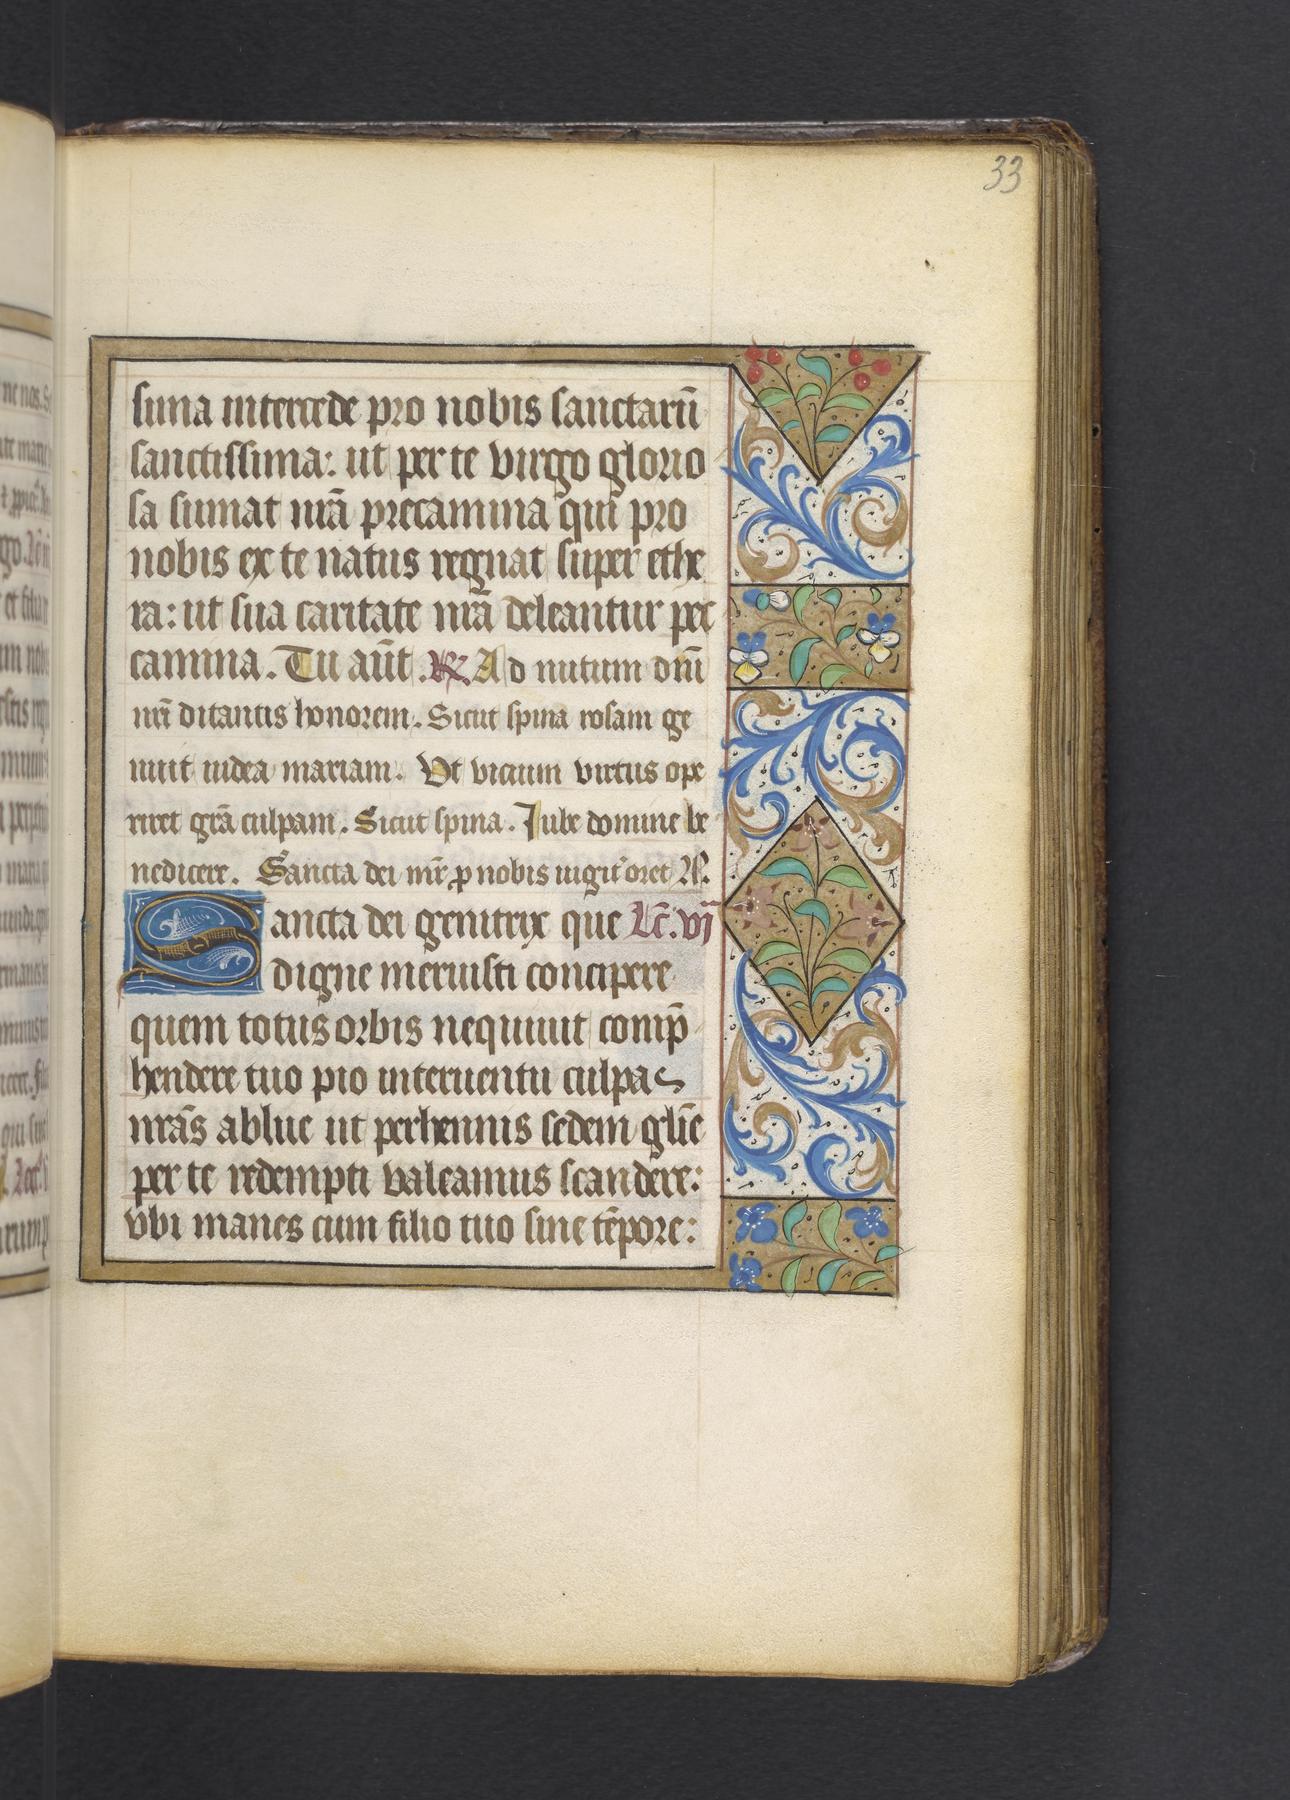 33
sima intercede pro nobis sanctarū
sanctissima: ut per te virgo glorio
sa sumat nrā precamina qui pro
nobis ex te natus regnat super ethe
ra: ut sua caritate nrā deleantur pec
camina. Tu aūt. R. Ad nutum dnī
nrī ditantis honorem. Sicut spina rosam ge
nuit iudea mariam. Vt vicium virtus ope
riret grā culpam. Sicut spina. Iube domine be
nedicere. Sancta dei mr̄ p nobis iugit' oret
Sancta dei genitrix que Lc̄. vj
digne meruisti concipere
quem totus orbis nequiuit comp̄
hendere tuo pio interuentu culpas
nrās ablue ut perhennis sedem glīe
per te redempti valeamus scandere:
vbi manes cum filio tuo sine tēpore: